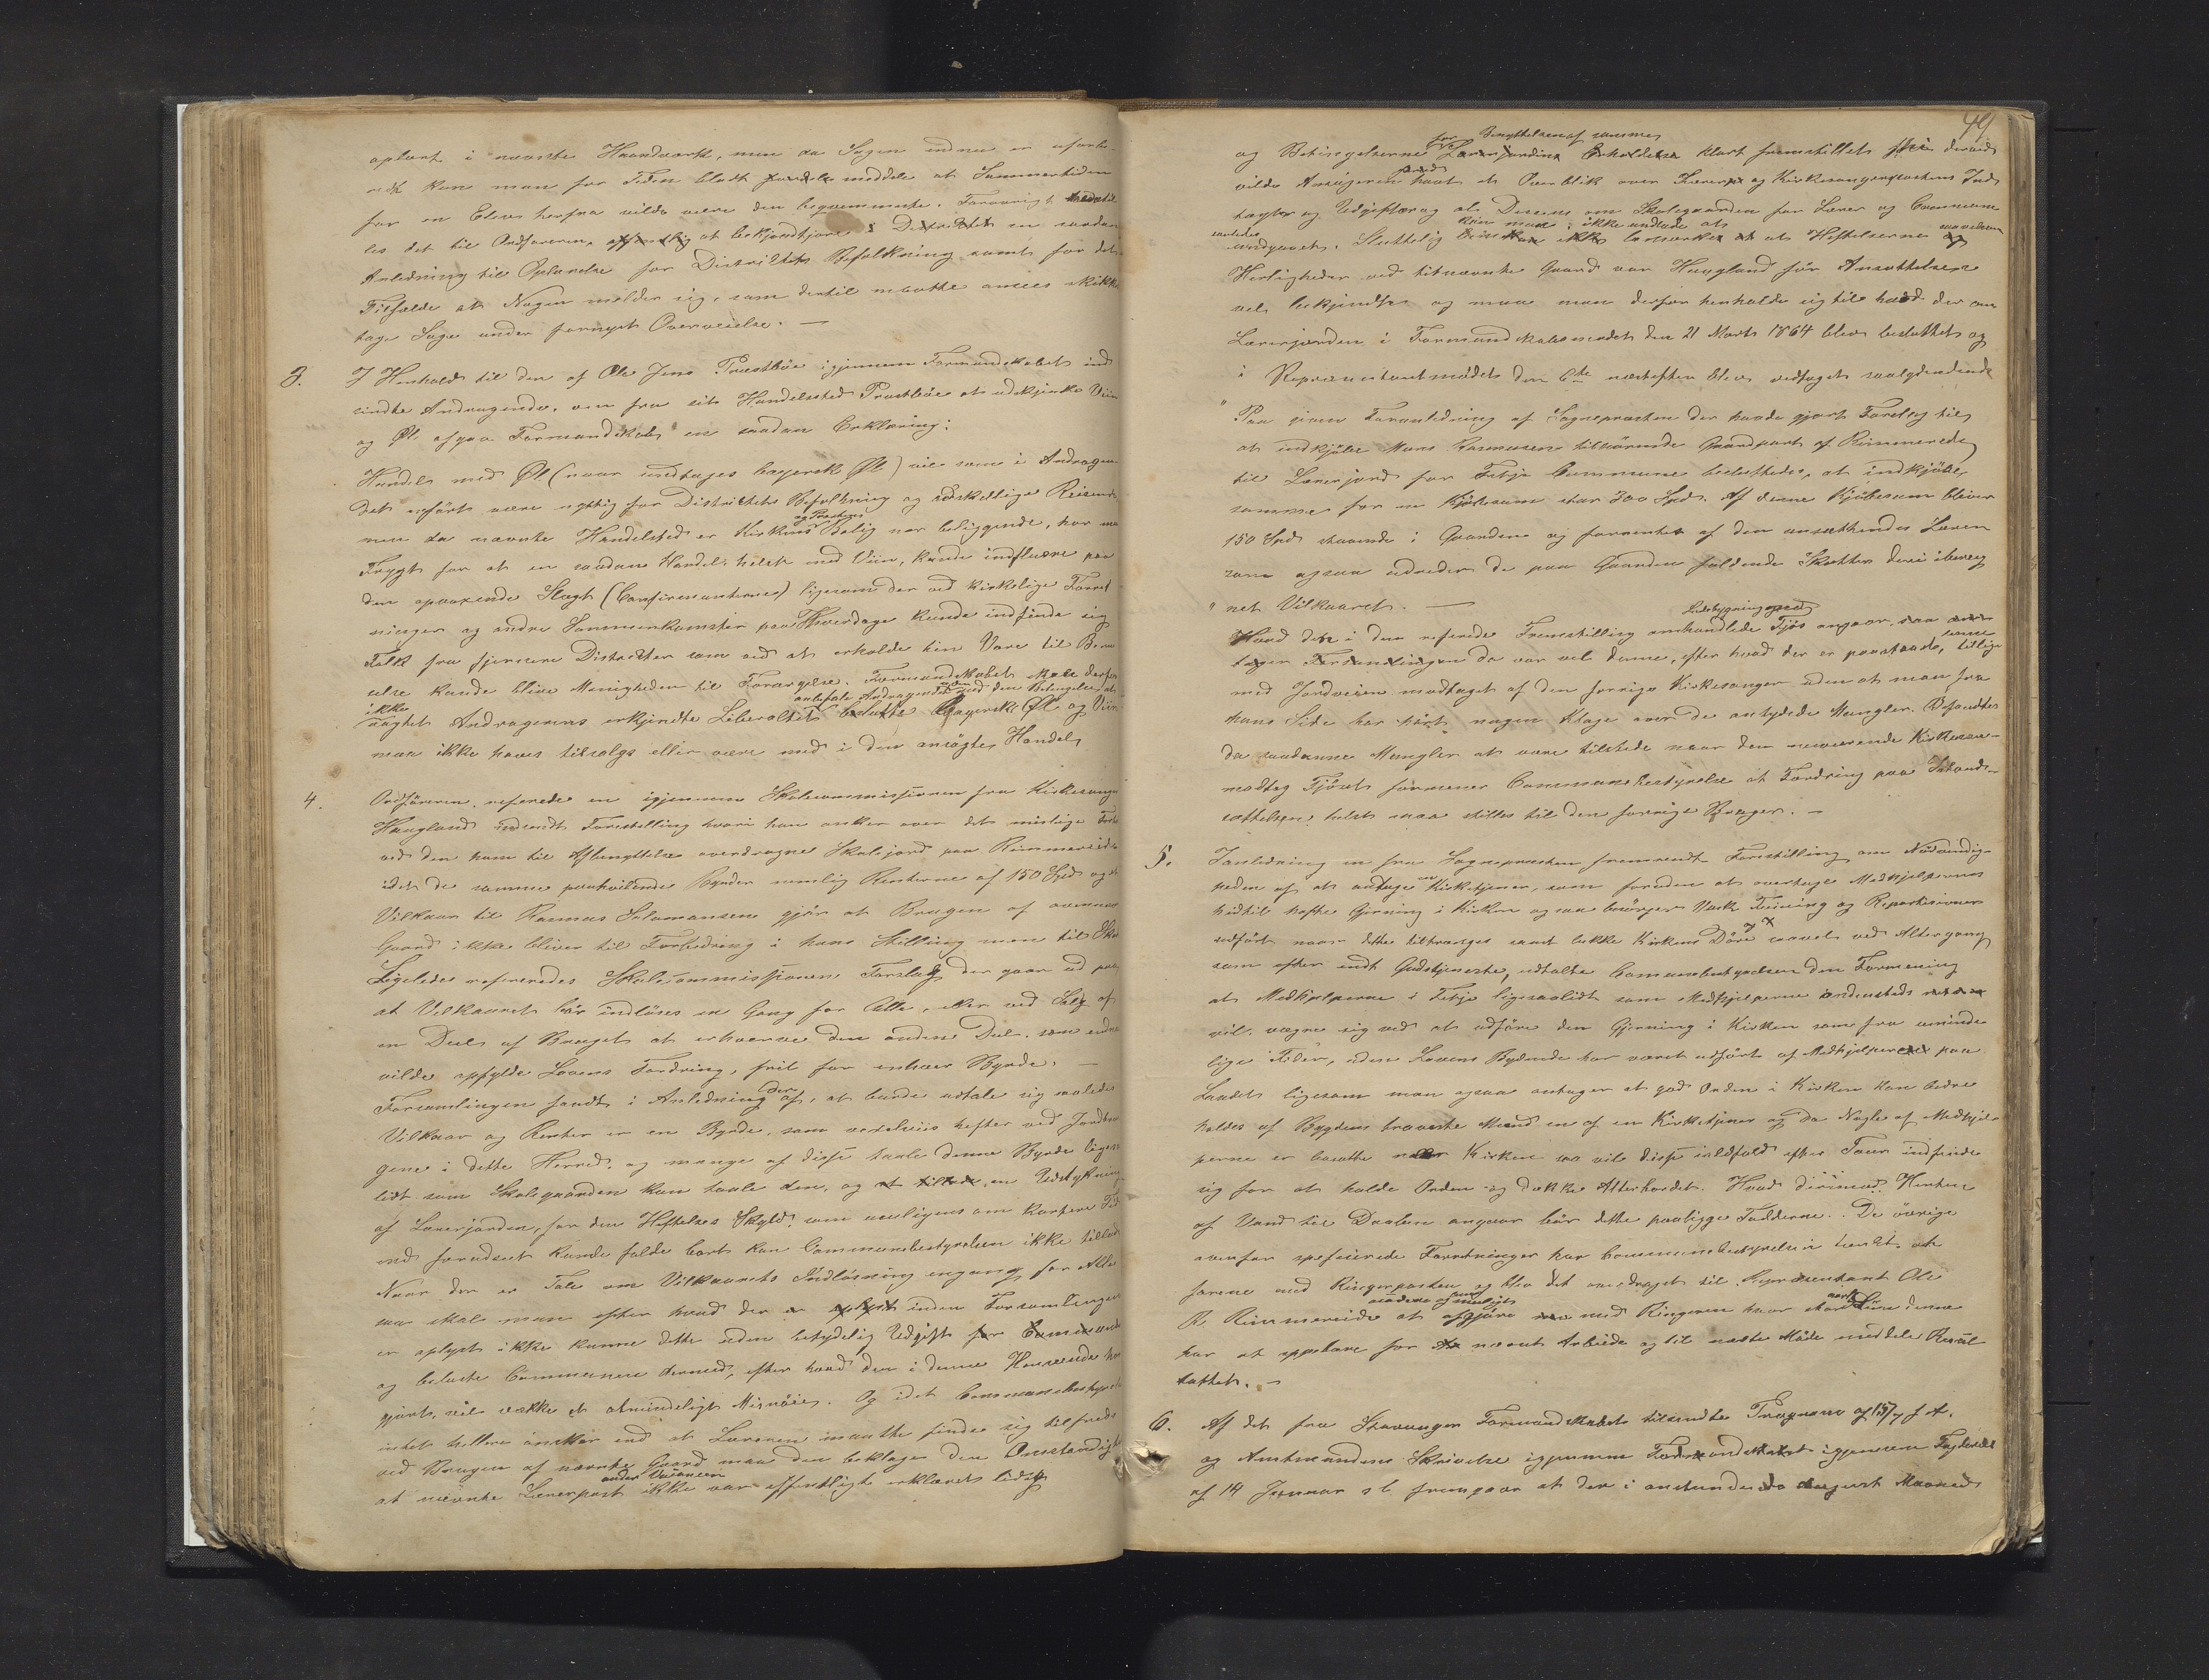 oplært i nævnte Haandværk, men da Sagen endnu er uforbe-
redt kan man for Tiden blodt meddele at Sommertiden
for en Elev herfra vilde være den beqvemmeste. Forøvrigt
les det til Ordføreren, at bekjendtgjøre i Distriktet en saadan
Anledning til Oplærelse for Distriktets Befolkning samt for det
Tilfælde at Nogen melder sig, som dertil maatte ansees skikke
tage Sagen under fornyet Overveielse. —
3. I Henhold til den af Ole Jens. Præstbøe igjennem Formandskabet ind
sendte Andragende, om fra sit Handelssted Præstbøe at udskjenke Viin
og Øl afgav Formandskabet en saadan Erklæring:
Handel med Øl (naar undtages bayersk Øl) vil som i Andragen
det anført være nyttig for Distriktets Befolkning og adskellige Reisende
men da nævnte Handelssted er Kirkens og Prestens Bolig nær beliggende, har man
Frygt for at en saadan Handel, helst med Viin, kunde influere paa
den opvoxende Slægt (Confirmanterne) ligesom der ved kirkelige Forret
ninger og andre Sammenkomster paa Hverdage kunde indfinde sig
Folk fra fjernere Distrikter som ved at erholde hin Vare til Beru
else kunde blive Menigheden til Forargelse. Formandskabet skal derfor
ikke anbefale Andragendet uden med den Betingelse at
uagtet Andragerens erkjendte Liberalitet Bayersk Øl og Viin
maa ikke haves tilsalgs eller være med i den ansøgte Handel
4. Ordføreren refererede en igjennem Skolecommissionen fra Kirkesanger
Haugland indsendt Forestilling hvori han anker over det mislige
ved den ham til Afbenyttelse overdragne Skolejord paa Rimmereid
idet de samme paahvilende Byrder nemlig Renterne af 150 Spd og et
Vilkaar til Rasmus Salamonsen gjør at Brugen af ovennævnte
Gaard ikke bliver til Forbedring i hans Stilling men til Ska
Ligeledes refereredes Skolecommissionens Forslag der gaar ud paa
at Vilkaaret bør indløses en Gang for Alle, eller ved Salg af
en Deel af Bruget at erhverve den anden Deel, som endnu
vilde opfylde Lovens Fordring, frit for enhver Byrde. —
Forsamlingen fandt i Anledning deraf, at burde udtale sig saaledes
Vilkaar og Renter er en Byrde, som sædvanlig hefter ved Jordbru
gene i dette Herred, og mange af disse taale denne Byrde ligesaa
lidt som Skolegaarden kan taale den, og en Udstykning
af Lærerjorden, for den Heftelses Skyld, som muligens om kortere Tid
end forudseet kunde falde bort kan Communebestyrelsen ikke tillade
Naar der er Tale om Vilkaarets Indløsning engang for Alle
saa skal man efter hvad der inden Forsamlingen
er oplyst ikke kunne dette uden betydelig Udgift
og belaste Communen dermed, efter hvad der i denne Henseende
gjort, vil vække et almindeligt Misnøie. Og idet Communebestyrelsen
intet hellere ønsker end at Læreren maatte finde sig tilfreds
ved Brugen af nævnte Gaard maa den beklage den Omstændighed
at nævnte Lærerpost under Vacancen ikke var offentligt erklæret ledig
49
og Betingelserne for Benyttelsen af samme klart fremstillet thi derved
vilde Ansøgeren havt et Overblik over Lærer og Kirkesangerpostens Ind
tægter og Udgifter og als Dessens om Skolegaarden for Lærer og Commune
saaledes undgaaet. Sluttelig kan man ikke undlade at bemærke at Heftelserne saavelsom
Herligheder ved titnævnte Gaard var Haugland før Ansættelsen
vel bekjendte og maa man derfor henholde sig til hvad der om
Lærerjorden i Formandskabsmødet den 21 Marts 1864 blev besluttet og
i Repræsentantmødet den 6te næstefter blev vedtaget saalydende
"Paa given Foranledning af Sognepræsten der havde gjort Forslag til
at indkjøbe Mons Rasmusens tilhørende Gaardpart af Rimmereide
til Lærerjord for Fitje Commune besluttedes, at indkjøbe
samme for en Kjøbesum stor 300 Spd. Af denne Kjøbesum bliver
150 Spd staaende i Gaarden og forrentes af den ansættendes Lærer
som ogsaa udreder de paa Gaarden faldende Skatter deri ibereg
" net Vilkaaret. —
Hvad det i den refererede Fremstilling omhandlede Fjøs angaar, saa
da var vel denne, efter hvad der er paastaaet, tillige
med Jordveien modtaget af den forrige Kirkesanger uden at man fra
hans Side har hørt nogen Klage over de antydede Mangler. Befandtes
da saadanne Mangler at være tilstede naar den nuværende Kirkesan-
modtog Fjøset formener Communebestyrelse at Fordring paa Istand-
sættelsen helst maa stilles til den forrige Bruger. —
5. I Anledning en fra Sognepræsten fremsendt Forestilling om Nødvendig-
heden af at antage en Kirketjener, som foruden at overtage Medhjelpernes
hidtil havte Gjerning i Kirken ogsaa besørger Vask Feining og Reparationer
udført naar dette tiltrænges samt lukke Kirkens Døre saavel ved Altergang
som efter endt Gudstjeneste, udtalte Communebestyrelsen den Formening
at Medhjelperne i Fitje ligesaalidt som Medhjelperne andensteds
vil vægre sig ved at udføre den Gjerning i Kirken som fra uminde
lige Tider, uden Lovens Bydende har været udført af Medhjelpere paa
Landet ligesom man ogsaa antager at god Orden i Kirken kan bedre
holdes af Bygdens bravesete Mænd en af en Kirketjener og da Nogle af Medhjel-
perne er bosatte nær Kirken saa vil disse ialdfald efter Tour indfinde
sig for at holde Orden og dække Alterbordet. Hvad derimod Henten
af Vand til Daaben angaar bør dette paaligge Fadderne. De øvrige
ovenfor specificerede Forretninger har Communebestyrelsen tænkt at
forene med Ringerposten og blev det overdraget til Repræsentant Ole
R. Rimmereide at afgjøre med Ringeren hvor stor aarlig Løn denne
har at oppebære for nævnt Arbeide og til næste Møde meddele Resul-
tattet. —
6. Af det fra Stavanger Formandskabet tilsendte Program af 15/7 f. A.
og Amtmandens Skrivelse igjennem Fogderiet
af 14 Januar d.å. fremgaar at der i anstundende August Maaned